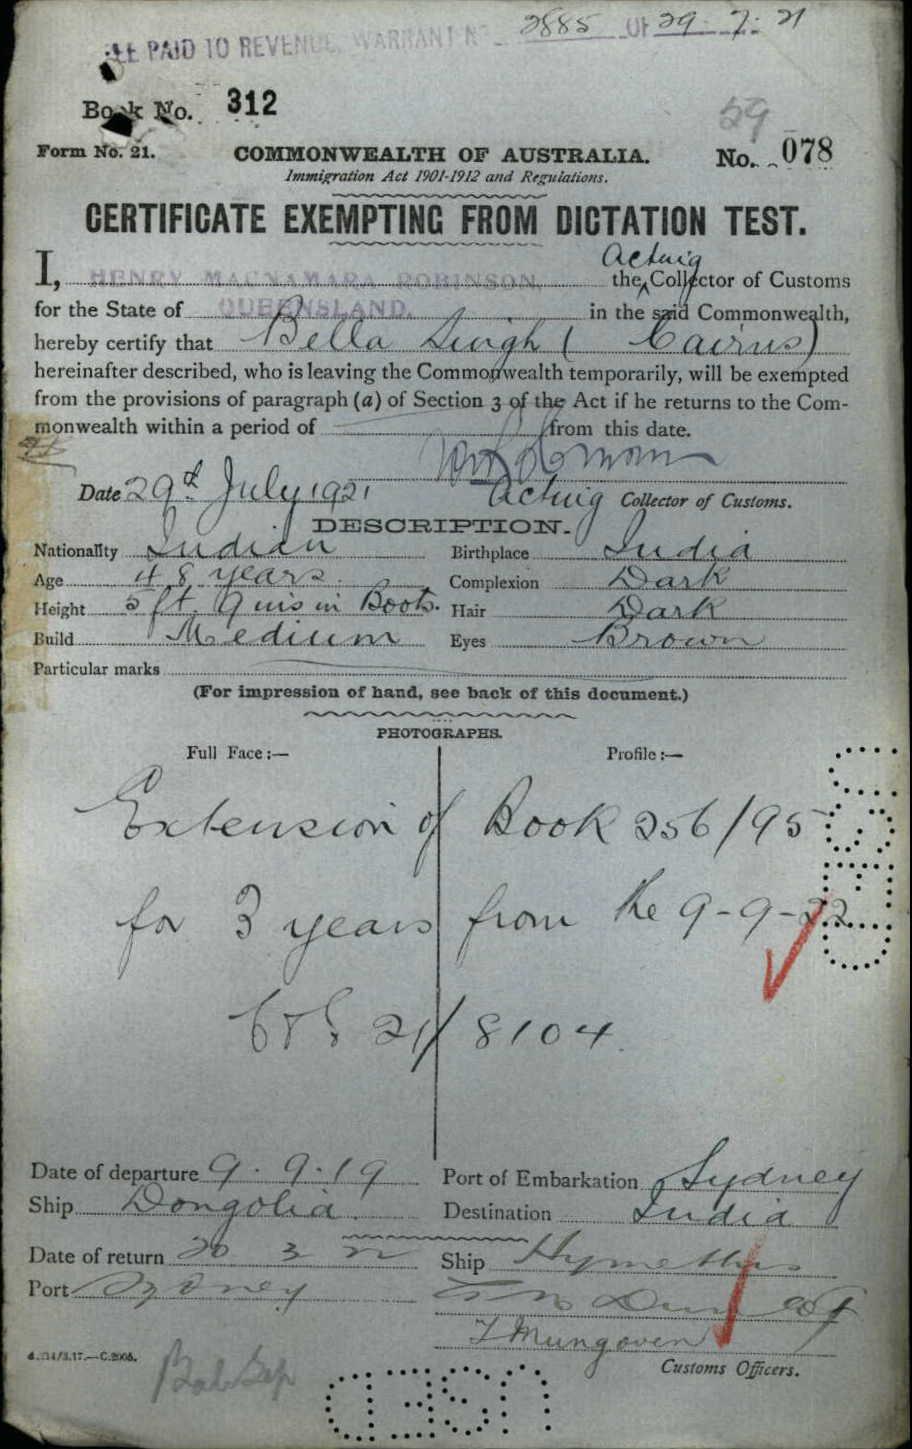 FEE PAID TO REVENUE, WARRANT No 2885 OF 29. 7. 21
Book No. 312
59
Form No. 21. COMMONWEALTH OF AUSTRALIA. No. 078
Immigration Act 1901-1912 and Regulations.
CERTIFICATE EXEMPTING FROM DICTATION TEST.
Acting
I, HENRY MACNAMARA ROBINSON, the Collector of Customs
for the State of QUEENSLAND. in the said Commonwealth,
hereby certify that Bella Singh ( Cairns)
hereinafter described, who is leaving the Commonwealth temporarily, will be exempted
from the provisions of paragraph (a) of Section 3 of the Act if he returns to the Com-
monwealth within a period of from this date.
Date 29th July 1921 Acting Collector of Customs.
DESCRIPTION.
Nationality Indian Birthplace India
Age 48 years. Complexion Dark
Height 5 ft. 9 ins in Boots. Hair Dark
Build Medium Eyes Brown
Particular marks
(For impression of hand, see back of this document.)
PHOTOGRAPHS.
Full Face:— Profile:—
Extension of Book 256/95
for 3 years from the 9-9-22
21/8104
Date of departure 9. 9. 19 Port of Embarkation Sydney
Ship Dongolia Destination India
Date of return 20 3 22 Ship Hymettus
Port Sydney
T Mungoven
Customs Officers.
C.2005.
USED